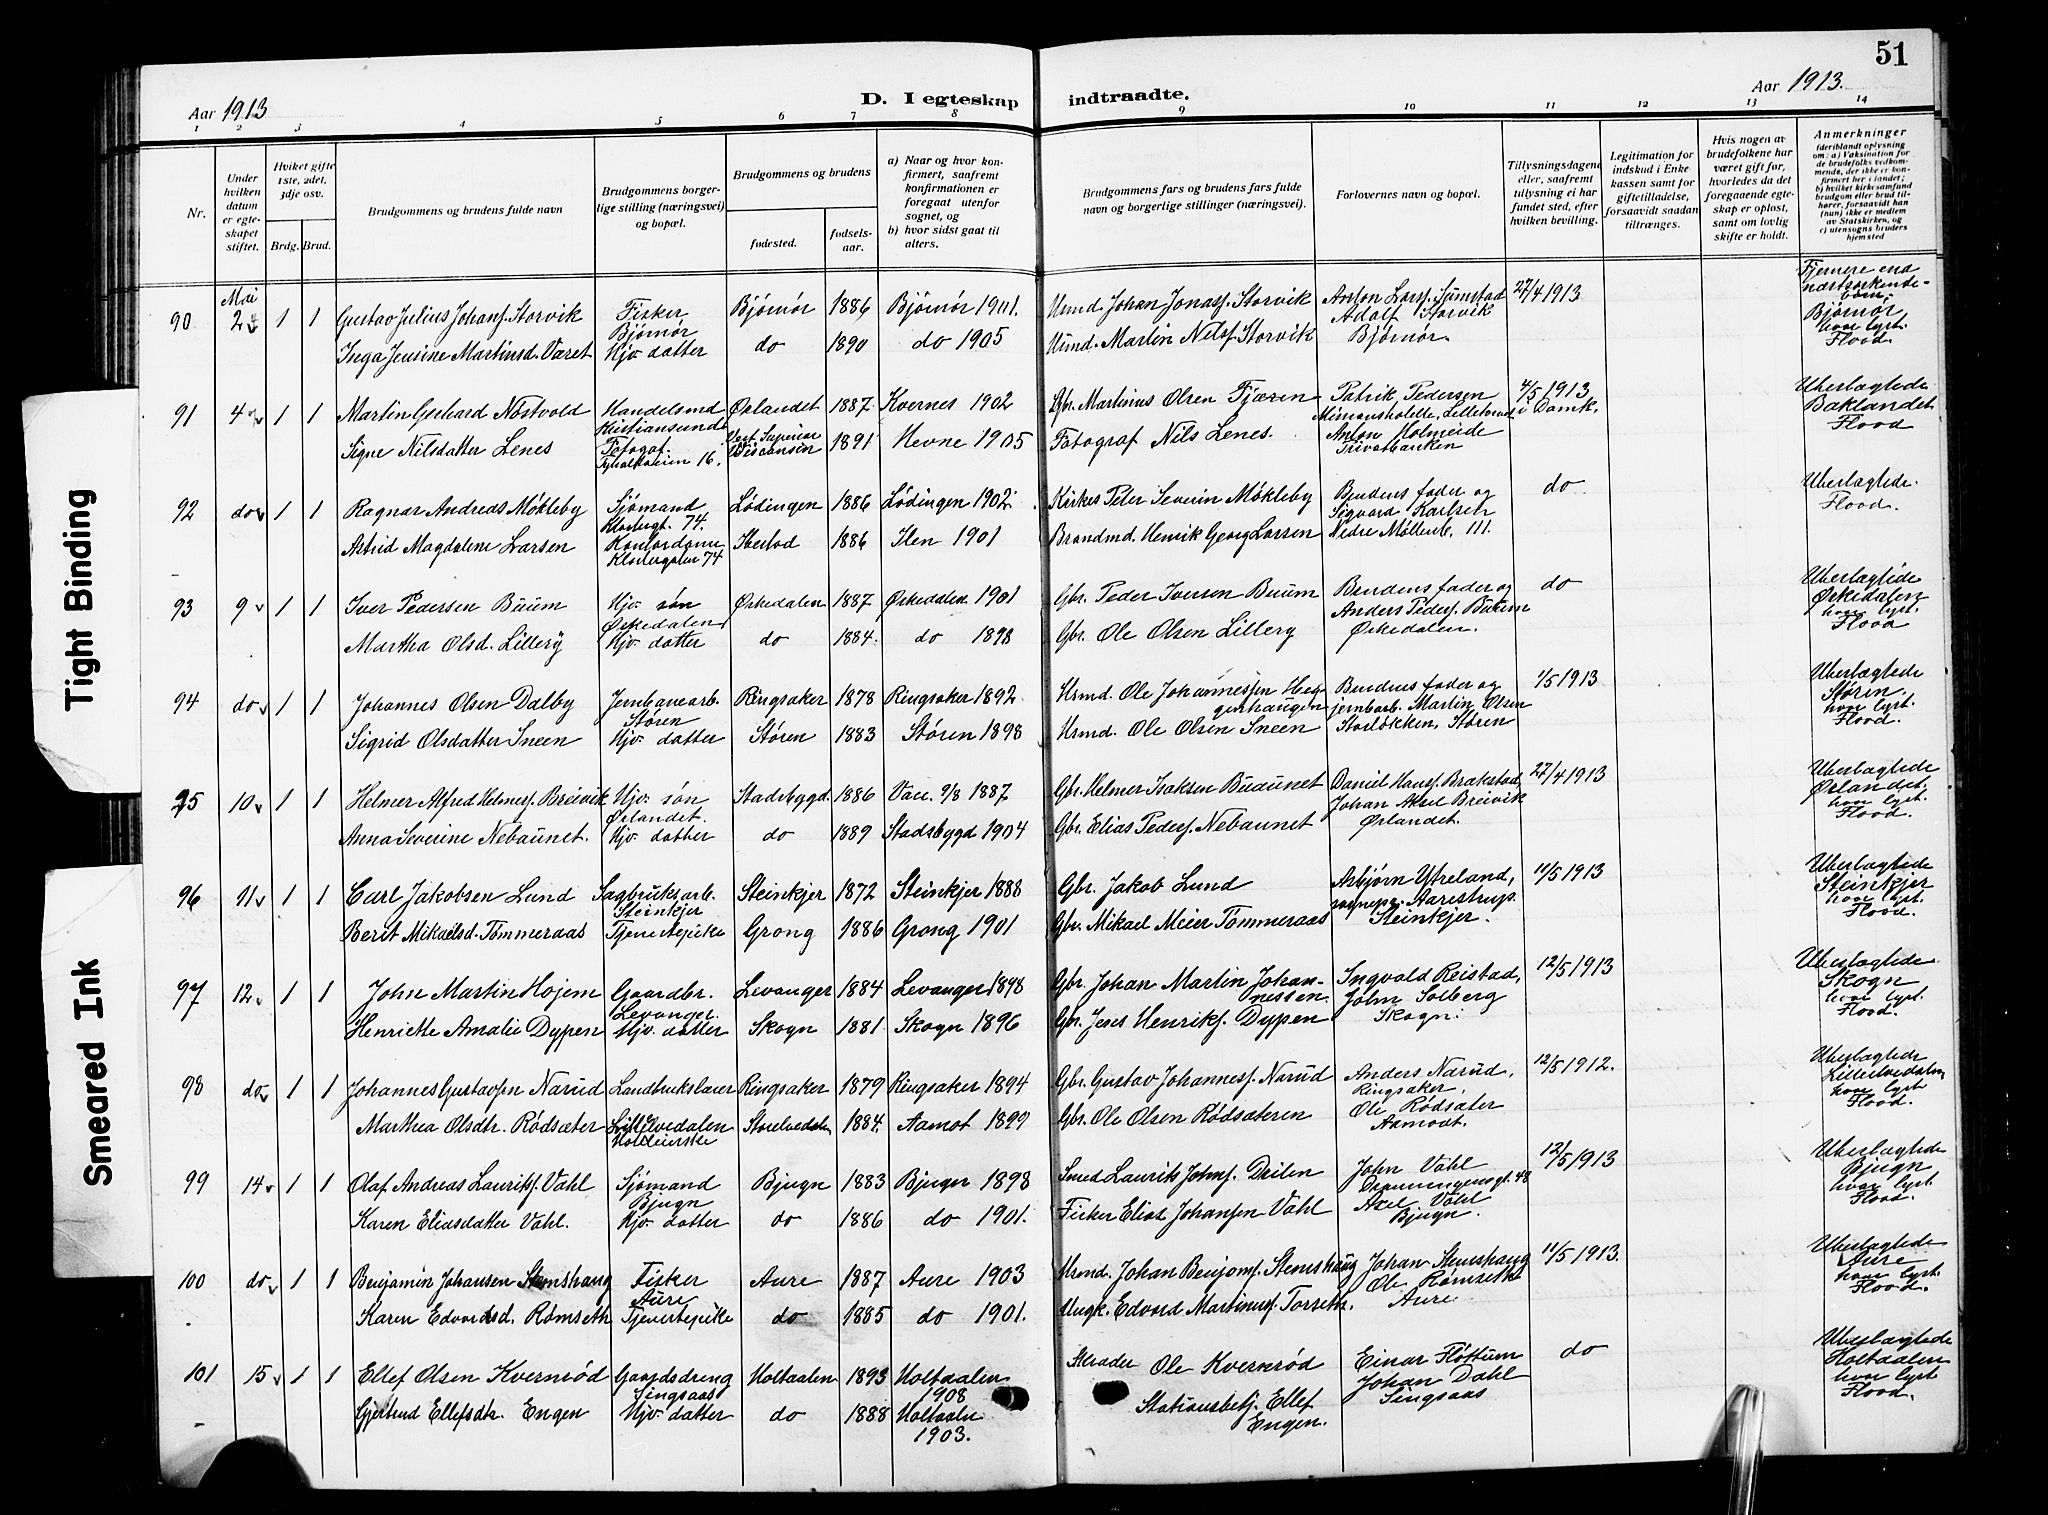 51
Aar 1913
D. I egteskap indtraadte.
Aar 1913.
1 2 3 4 5 6 7 8 9 10 11 12 13 14
Nr.
Under hvilken datum er egteskapet stiftet.
Hviket gifte 1ste, 2det, 3dje osv.
Brdg. Brud.
Brudgommens og brudens fulde navn
Brudgommens borgerlige stilling (næringsvei) og bopæl.
Brudgommens og brudens
fødested. fødselsaar.
a) Naar og hvor konfirmert, saafremt konfirmationen er foregaat utenfor sognet, og
b) hvor sidst gaat til alters.
Brudgommens fars og brudens fars fulde navn og borgerlige stillinger (næringsvei).
Forlovernes navn og bopæl.
Tillysningsdagene eller, saafremt tillysning ei har fundet sted, efter hvilken bevilling.
Legitimation for indskud i Enkekassen samt for giftetilladelse, forsaavidt saadan tiltrænges.
Hvis nogen av brudefolkene har været gift før, hvorledes da det foregaaende egteskap er opløst, samt om lovlig skifte er holdt.
Anmerkninger (deriblandt oplysning om: a) Vaksination for de brudefolks vedkommende, der ikke er konfirmert her i landet; b) hvilket kirkesamfund brudgom eller brud tilhører, forsaavidt han (hun) ikke er medlem av Statskirken, og c) utensogns bruders hjemsted
90 Mai 2 1 1 Gustav Julius Johans. Storvik Fisker Bjørnør Bjørnør 1886 Bjørnør 1901. Husmd. Johan Jonas. Storvik Anton Lars. Sumstad 27/4 1913 Fjernere end
Adolf Storvik Bjørnør
Inga Jensine Martinsd. Været Hjv. datter do 1890 do 1905 Husmd. Martin Nils. Storvik Bjørnør. hvor lyst. Flood.
91 4 1 1 Martin Gerhard Nøstvold Handelsmd Kristiansund Ørlandet 1887 Kvernes 1902 Gbr. Martinus Olsen Fjæren Patrik Pedersen 4/5 1913 Uberlagtede
i Domk. Baklandet
Signe Nilsdatter Lenes Fotogaf. 16. West Superior Wisconsin 1891 Hevne 1905 Fotograf Nils Lenes. Anton Holmeide Privatbanken Flood
92 do 1 1 Ragnar Andreas Møkleby Sjømand Klostergt. 74. Lødingen 1886 Lødingen 1902 Kirkes Peter Severin Møkleby Brudens fader og do Uberlagtede.
Sigvard Karlsen Flood.
Astrid Magdalene Larsen Kontordame Klostergaten 74 Ibestad 1886 Ilen 1901 Brandmd. Henrik Georg Larsen Nedre Møllenb. 111.
93 9 1 1 Iver Pedersen Buum Hjv. søn Ørkedalen Ørkedalen 1887 Ørkedalen 1901 Gbr. Peder Iversen Buum Brudens fader og do Uberlagtede
Anders Peders. Buum Ørkedalen
Martha Olsd. Lillery Hjv. datter do 1884. do 1898 Gbr. Ole Olsen Lillery Ørkedalen. hvor lyst. Flood
94 do 1 1 Johannes Olsen Dalby Jernbanearb. Støren Ringsaker 1878 Ringsaker 1892 Husmd. Ole Johannessen Heggenhaugen Brudens fader og 1/5 1913 Uberlagtede
jernbarb. Martin Olsen Støren.
Sigrid Olsdatter Sneen Hjv. datter Støren 1883 Støren 1898 Husmd. Ole Olsen Sneen Storløkken, Støren hvor lyst. Flood.
95 10 1 1 Helmer Alfred Helmers. Breivik Hjv. søn Ørlandet. Stadsbygd 1886 Vacc. 9/8 1887 Gbr. Helmer Isaksen Budunet Daniel Hans. Brækstad, 27/4 1913 Uberlagtede
Johan Axel Breivik Ørlandet,
Anna Severine Nebaunet. Hjv. datter do 1889 Stadsbygd 1904 Gbr. Elias Peders. Nebaunet Ørlandet. hvor lyst. Flood.
96 11 1 1 Carl Jakobsen Lund Sagbruksarb. Steinkjer Steinkjer 1872 Steinkjer 1888 Gbr. Jakob Lund Asbjørn Ytreland, 11/5 1913 Uberlagtede
sognepr. Aarestrup. Steinkjer
Berit Mikaelsd. Tømmeraas Tjenestepike Grong 1886 Grong 1901 Gbr. Mikael Meier Tømmeraas Steinkjer. hvor lyst. Flood.
97 12 1 1 John Martin Hojem Gaardbr. Levanger. Levanger 1884 Levanger 1898 Gbr. Johan Martin Johannessen Ingvald Reistad, 12/5 1913 Uberlagtede
John Solberg Skogn
Henriette Amalie Dypen Hjv. datter Skogn 1881 Skogn 1896 Gbr. Jens Henriks. Dypen Skogn. hvor lyst. Flood.
98 do 1 1 Johannes Gustavsen Narud Landbrukslærer Ringsaker 1879 Ringsaker 1894 Gbr. Gustav Johannes. Narud Anders Narud, 12/5 1912. Uberlagtede
Ringsaker. Lilleelvedalen,
Marthea Olsdtr. Rødsæter Lilleelvedalen Holdeierske Storelvedalen 1884. Aamot 1899 Gbr. Ole Olsen Rødsæteren Ole Rødsæter Aamodt. hvor lyst. Flood.
99 14 1 1 Olaf Andreas Lauriks. Vahl Sjømand Bjugn Bjugn 1883 Bjugn 1898 Smed Laurik Johns. Deilen John Vahl 12/5 1913 Uberlagtede
48 Bjugn
Karen Eliasdatter Vahl. Hjv. datter do 1886 do 1901. Fisker Elias Johansen Vahl Axel Vahl Bjugn. hvor lyst. Flood.
100 do 1 1 Benjamin Johansen Stemshaug Fisker Aure Aure 1887 Aure 1903 Husmd. Johan Benjams. Stemshaug Johan Stemshaug 11/5 1913. Uberlagtede
Ole Rømseth Aure
Karen Edvardsd. Rømseth Tjenestepike do 1885 do 1901. Ungk. Edvard Martinus. Torseth. Aure hvor lyst. Flood.
101 15 1 1 Ellef Olsen Kvernrød Gaardsdreng Singsaas Holtaalen 1893 Holtaalen 1908 Ole Kvernrød Einar Fløttum do Uberlagtede
Johan Dahl Holtdalen
Gjertrud Ellefsdtr. Engen Hjv. datter do 1888 Holtaaln 1903. Stationsbetj. Ellef Engen. Singsaas hvor lyst. Flood.
Tight Binding
Smeared Ink